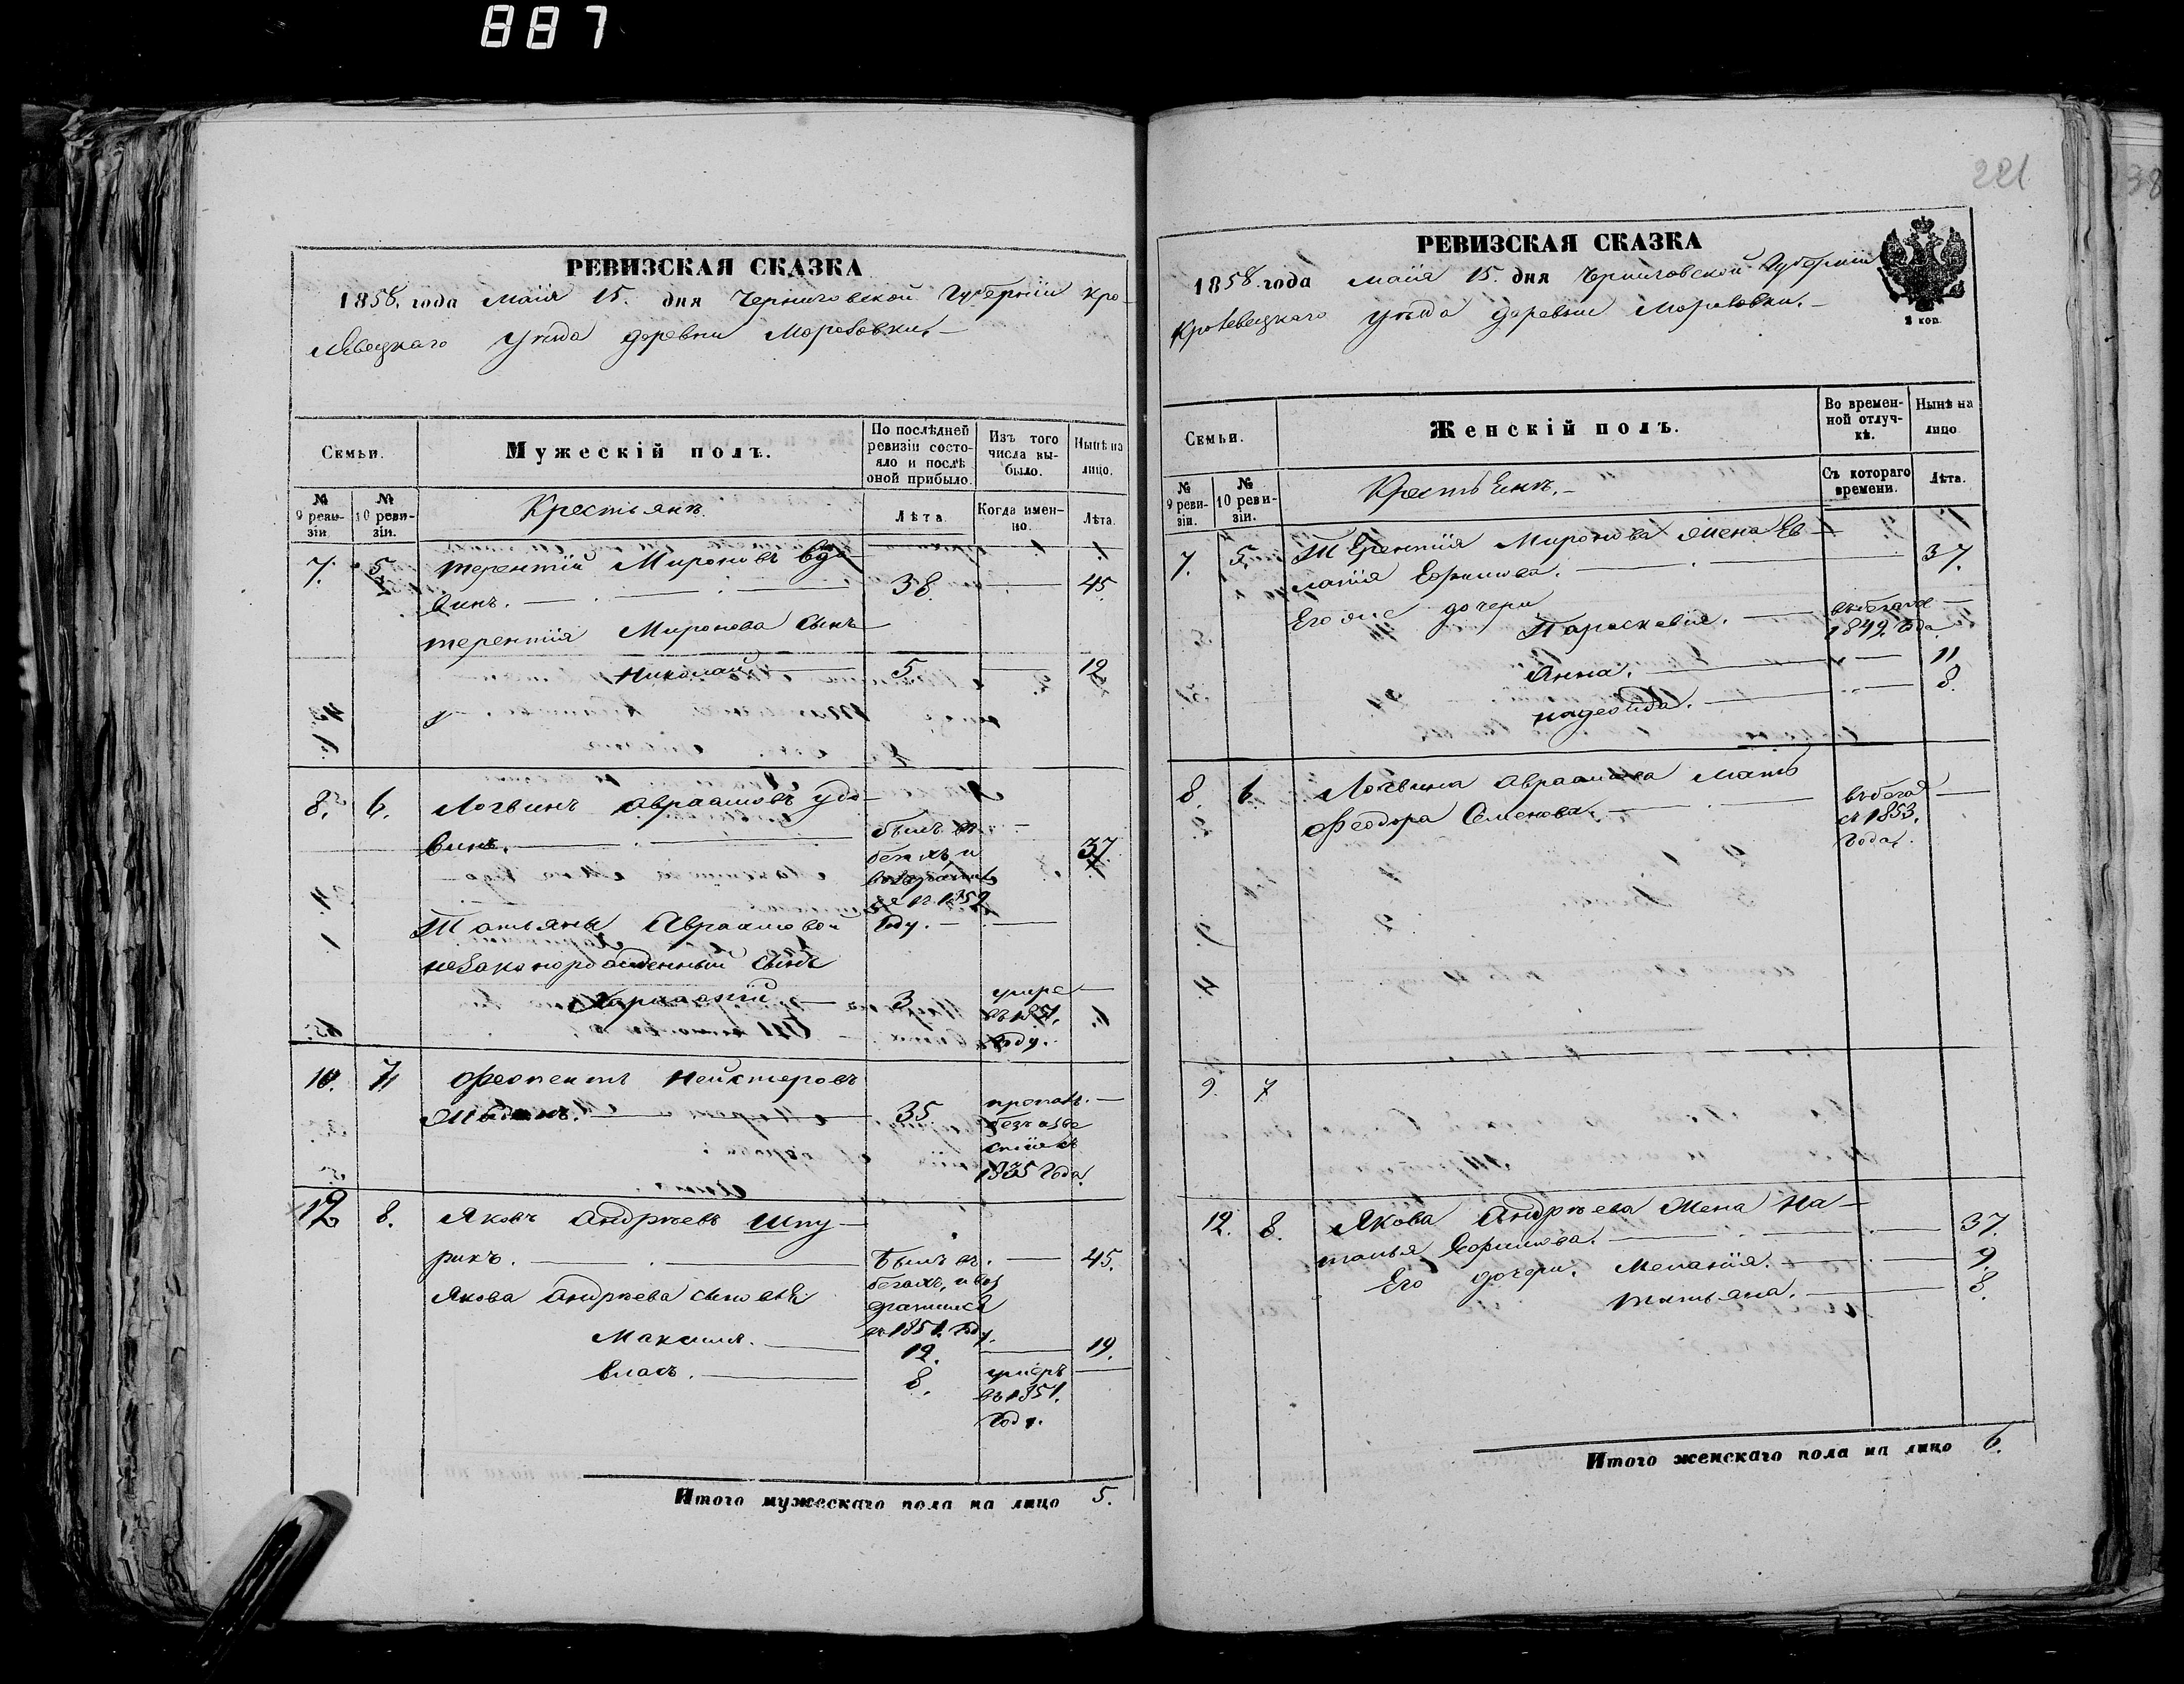 887
РЕВИЗСКАЯ СКАЗКА
1858. года маія 15. дня Черниговской Губерніи Кро-
левецкаго уѣзда деревни Морозовки.
Семьи.
Мужескій полъ.
По послѣдней ревизіи состояло и послѣ оной прибыло.
Изъ того числа выбыло.
Нынѣ на лицо.
№ 9 ревизіи.
№ 10 ревизіи.
Крестьянъ.
Лѣта.
Когда именно.
Лѣта.
7. 5. Терентій Мироновъ Вдо-
винъ. 38. 45.
Терентія Миронова сынъ
Николай 5. 12
8. 6. Логвинъ Авраамовъ удо-
винъ. былъ въ бегахъ, и возвратился въ 1852 году. 37.
Татьяны Авраамовой
незаконорожденный сынъ
Харлампій 3 умре въ 1851. году.
10. 7 Феопентъ
35 пропалъ безъ 1835 года.
12 8. Яковъ Андрѣевъ Шпу-
рикъ. былъ въ бегахъ, и воз вратился въ 1851. году. 45.
Якова Андрѣева сыновья
Максимъ. 12. 19.
Власъ. 8. умеръ въ 1851. году.
Итого мужескаго пола на лицо 5.
221
РЕВИЗСКАЯ СКАЗКА
1858. года маія 15. дня Черниговской Губерніи
Кролевецкаго уѣзда деревни Морозовки.
2 коп.
Семьи.
Женскій полъ.
Во временной отлучкѣ.
Нынѣ на лицо
№ 9 ревизіи.
№ 10 ревизіи.
Крестьянкъ.
Съ котораго времени.
Лѣта.
7. 5. Терентія Миронова жена Ев-
лапія Ефимова. 37.
Его же дочери
Параскевія. въ бегахъ 1849 года.
Анна. 11
Надежда. 8.
8. 6. Логвина Авраамова мать
Феодора Семенова. въ бегах съ 1853. года.
9. 7
12. 8. Якова Андрѣева жена На-
талья Ефимова. 37.
Его дочери. Меланія. 9.
Татьяна. 8.
Итого женскаго пола на лицо 6.